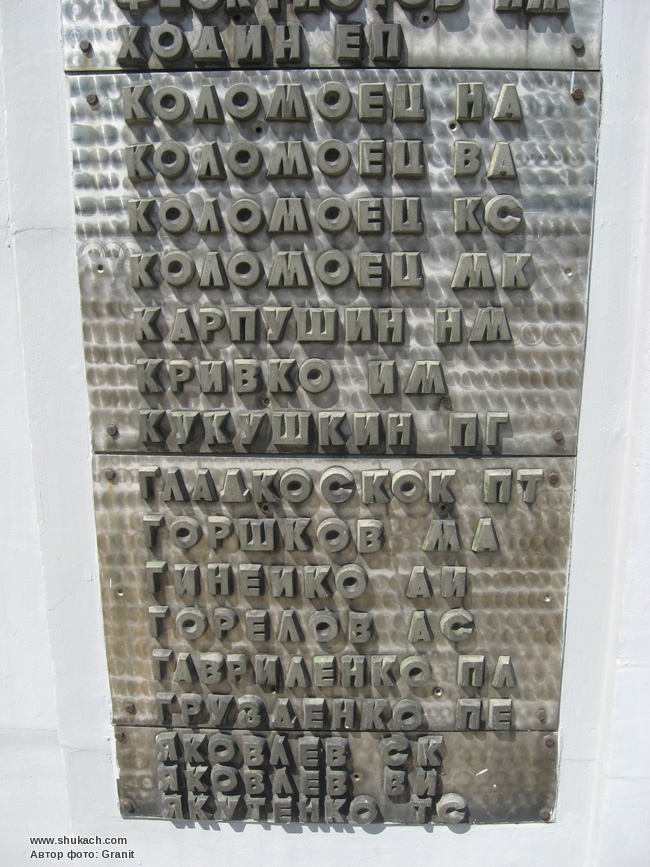 ФЕОКТИСТОВ ИМ
ХОДИН ЕП
КОЛОМОЕЦ НА
КОЛОМОЕЦ ВА
КОЛОМОЕЦ КС
КОЛОМОЕЦ МК
КАРПУШИН НМ
КРИВКО ИМ
КУКУШКИН ПГ
ГЛАДКОСКОК ПТ
ГОРШКОВ МА
ГИНЕЙКО АИ
ГОРЕЛОВ АС
ГАВРИЛЕНКО ПЛ
ГРУЗДЕНКО ПЕ
ЯКОВЛЕВ СК
ЯКОВЛЕВ ВИ
ЯКУТЕНКО ТС
www.shukach.com
Автор фото: Granit